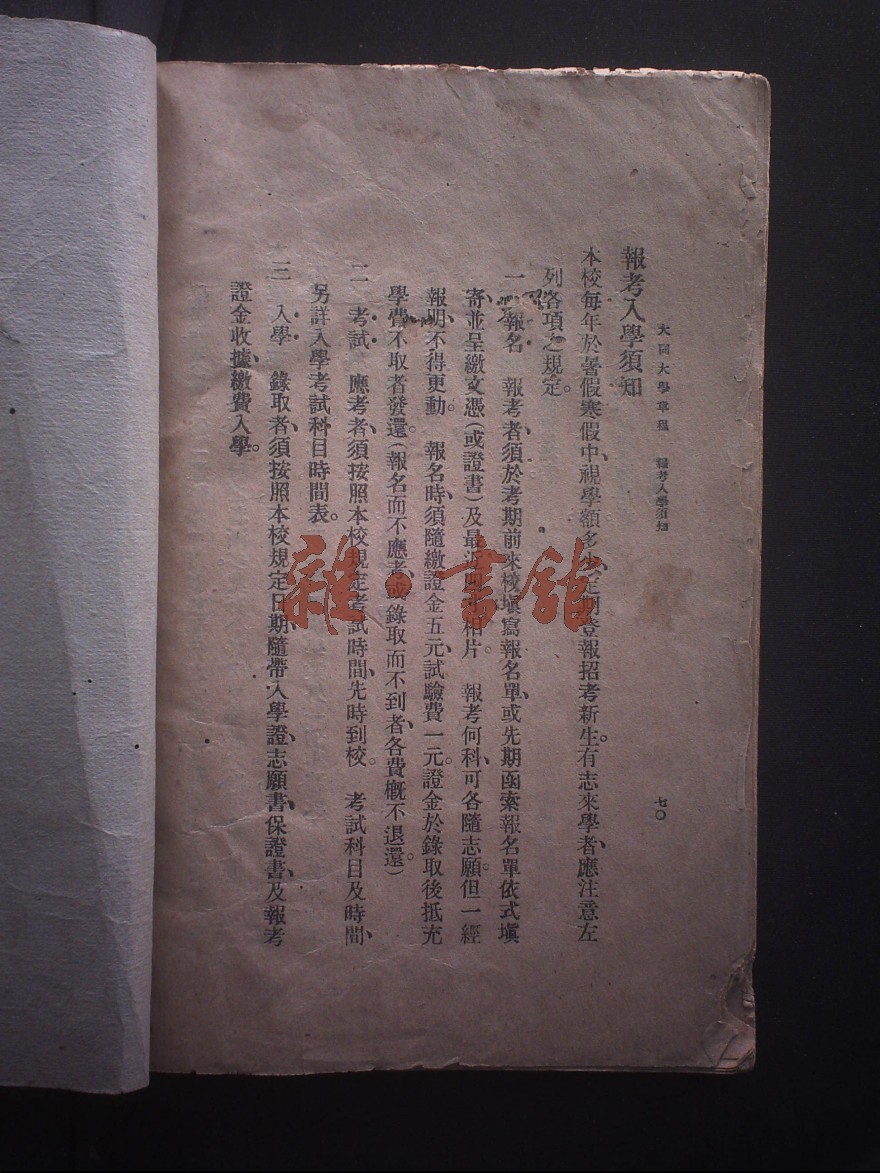 大同大學章程　報考入學須知　七〇
報考入學須知
本校每年於暑假寒假中、視學額多少、定期登報招考新生。有志來學者、應注意左
列各項之規定。
一　報名　報考者、須於考期前來校塡寫報名單、或先期函索報名單依式塡
寄、並呈繳文憑（或證書）及最近四寸相片。　報考何科、可各隨志願。但一經
報明、不得更動。　報名時、須隨繳證金五元、試驗費一元。證金於錄取後抵充
學費、不取者發還。（報名而不應考、或錄取而不到者、各費槪不退還）
二　考試　應考者、須按照本校規定考試時間、先時到校。　考試科目及時間、
另詳入學考試科目時間表。
三　入學　錄取者、須按照本校規定日期、隨帶入學證、志願書、保證書、及報考
證金收據、繳費入學。
雜·書館